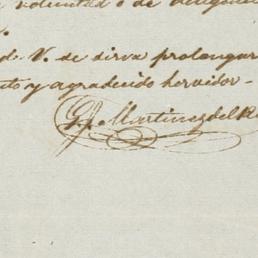 voluntad o de
d. V. se sirva prolongar
to y agradecido servidor-
G. Martinez del Rio